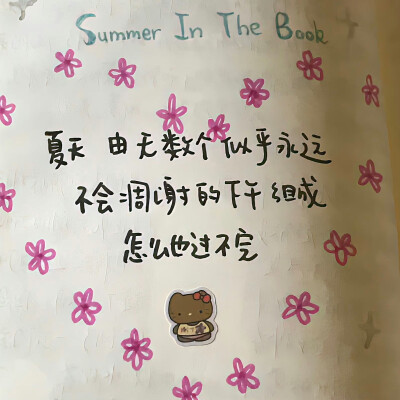 Summer In The Book
夏天 由无数个似乎永远
不会凋谢的下午组成
怎么也过不完